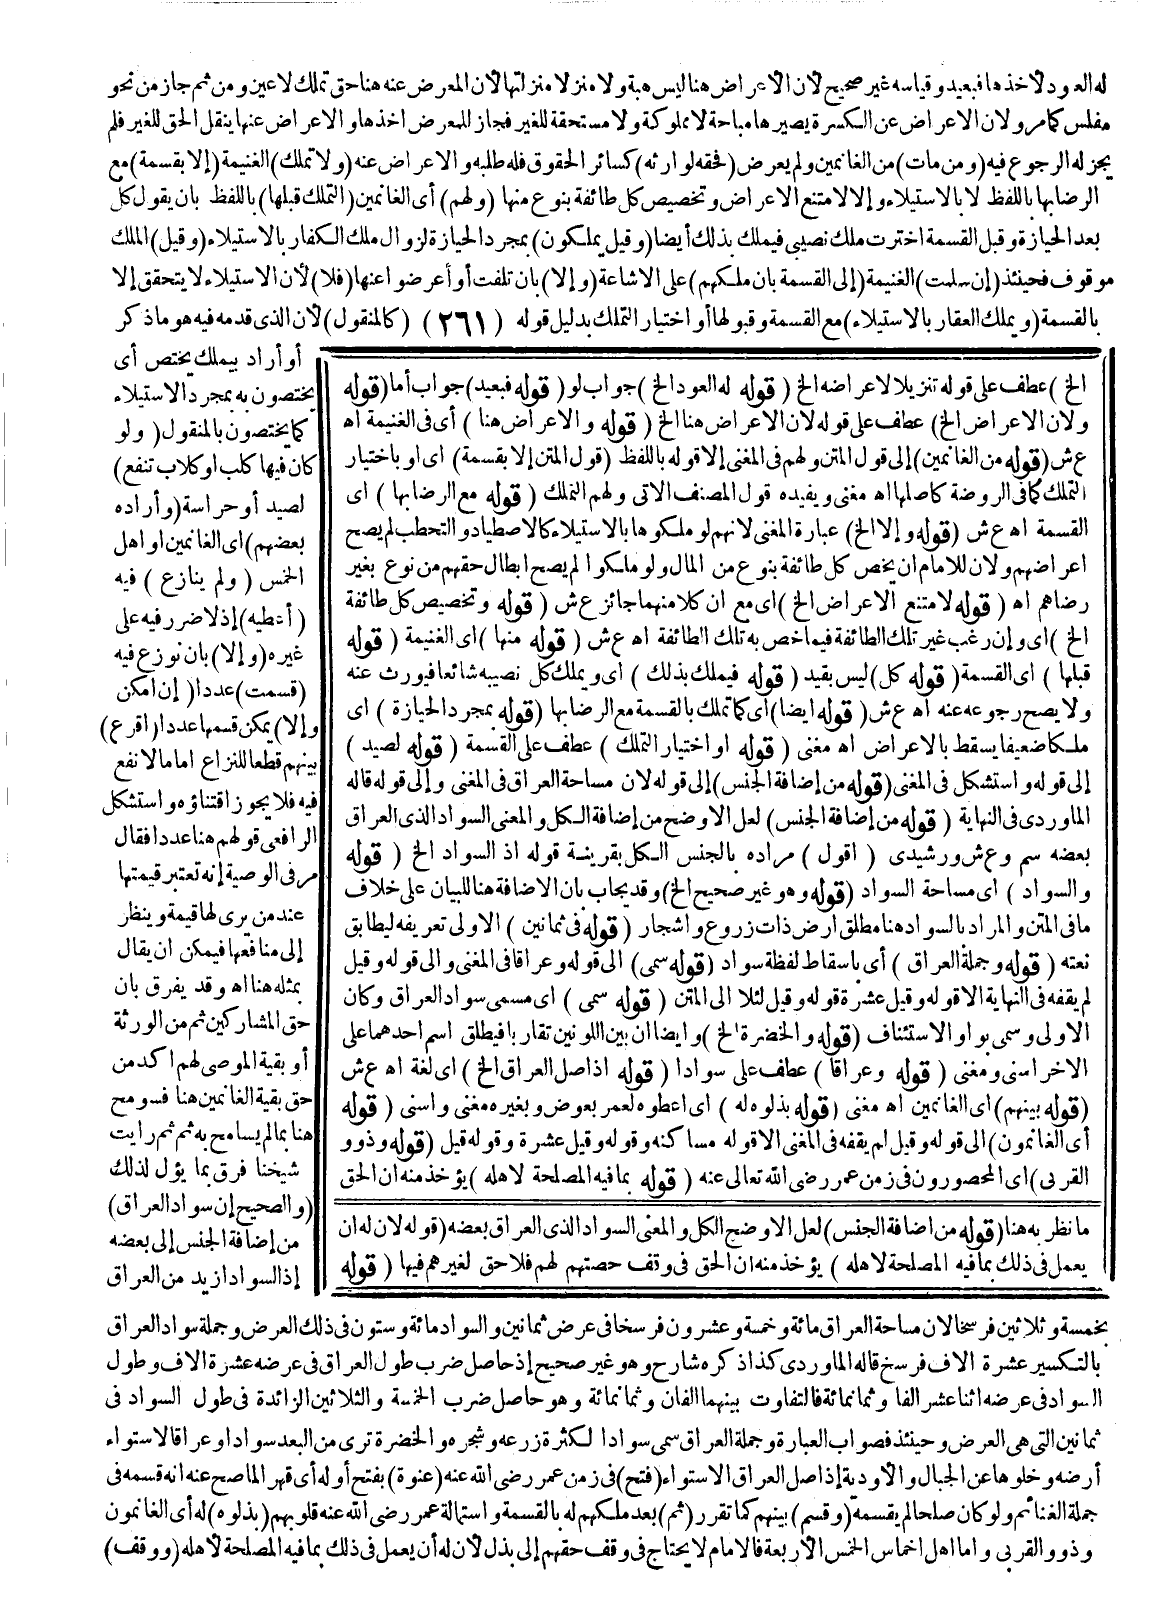 له العود لاخذها فبعيد وقياسه غير صحيح لان الاعراض هنا ليس هبة ولا منزلا منزلتها لان المعرض عنه هنا حق تملك لا عين ومن ثم جاز من نحو
مفلس كما مر ولان الاعراض عن الكسرة يصيرها مباحة لا مملوكة ولا مستحقة للغير فجاز للمعرض اخذها والاعراض عنها ينقل الحق للغير فلم
يجز له الرجوع فيه (ومن مات) من الغانمين ولم يعرض (فحقه لوارثه) كسائر الحقوق فله طلبه والاعراض عنه (ولا تملك) الغنيمة (إلا بقسمة) مع
الرضا بها باللفظ لا بالاستيلاء وإلا لامتنع الاعراض وتخصيص كل طائفة بنوع منها (ولهم) أى الغانمين (التملك قبلها) باللفظ بان يقول كل
بعد الحيازة وقبل القسمة اخترت ملك نصيبى فيملك بذلك أيضا (وقيل يملكون) بمجرد الحيازة لزوال ملك الكفار بالاستيلاء (وقيل) الملك
موقوف فحينئذ (إن سلمت) الغنيمة (إلى القسمة بان ملكهم) على الاشاعة (وإلا) بان تلفت أو أعرضوا عنها (فلا) لأن الاستيلاء لا يتحقق إلا
بالقسمة (ويملك العقار بالاستيلاء) مع القسمة وقبولها أو اختيار التملك بدليل قوله (٢٦١) (كالمنقول) لأن الذى قدمه فيه هو ما ذكر
أو أراد بيملك يختص أى
يختصون به بمجرد الاستيلاء
كما يختصون بالمنقول (ولو
كان فيها كلب او كلاب تنفع)
لصيد أو حراسة (وأراده
بعضهم) اى الغانمين او اهل
الخمس (ولم ينازع) فيه
(أعطيه) إذ لا ضرر فيه على
غيره (وإلا) بان نوزع فيه
(قسمت) عددا (إن امكن
وإلا) يمكن قسمها عددا (اقرع)
بينهم قطعا للنزاع اما ما لا نفع
فيه فلا يجوز اقتناؤه واستشكل
الرافعى قولهم هنا عددا فقال
مر فى الوصية إنه تعتبر قيمتها
عند من يرى لها قيمة وينظر
إلى منافعها فيمكن ان يقال
بمثله هنا اه وقد يفرق بان
حق المشاركين ثم من الورثة
أو بقية الموصى لهم اكد من
حق بقية الغانمين هنا فسومح
هنا بما لم يسامح به ثم ثم رايت
شيخنا فرق بما يؤل لذلك
(والصحيح إن سواد العراق)
من إضافة الجنس إلى بعضه
إذ السواد ازيد من العراق
الخ) عطف على قوله تنزيلا لاعراضه الخ (قوله له العود الخ) جواب لو (قوله فبعيد) جواب أما (قوله
ولان الاعراض الخ) عطف على قوله لان الاعراض هنا الخ (قوله والاعراض هنا) أى فى الغنيمة اه
ع ش (قوله من الغانمين) إلى قول المتن ولهم فى المغنى إلا قوله باللفظ (قول المتن إلا بقسمة) اى او باختيار
التملك كما فى الروضة كاصلها اه مغنى ويفيده قول المصنف الاتى ولهم التملك (قوله مع الرضا بها) اى
القسمة اه ع ش (قوله وإلا الخ) عبارة المغنى لانهم لو ملكوها بالاستيلاء كالاصطياد والتحطب لم يصح
اعراضهم ولان للامام ان يخص كل طائفة بنوع من المال ولو ملكوا لم يصح ابطال حقهم من نوع بغير
رضاهم اه (قوله لامتنع الاعراض الخ) اى مع ان كلا منهما جائز ع ش (قوله وتخصيص كل طائفة
الخ) اى وإن رغب غير تلك الطائفة فيما خص به تلك الطائفة اه ع ش (قوله منها) اى الغنيمة (قوله
قبلها) اى القسمة (قوله كل) ليس بقيد (قوله فيملك بذلك) اى ويملك كل نصيبه شائعا فيورث عنه
ولا يصح رجوعه عنه اه ع ش (قوله ايضا) اى كما تملك بالقسمة مع الرضا بها (قوله بمجرد الحيازة) اى
ملكا ضعيفا يسقط بالاعراض اه مغنى (قوله او اختيار التملك) عطف على القسمة (قوله لصيد)
إلى قوله واستشكل فى المغنى (قوله من إضافة الجنس) إلى قوله لان مساحة العراق فى المغنى وإلى قوله قاله
الماوردى فى النهاية (قوله من إضافة الجنس) لعل الاوضح من إضافة الكل والمعنى السواد الذى العراق
بعضه سم وع ش ورشيدى (اقول) مراده بالجنس الكل بقرينة قوله اذ السواد الخ (قوله
والسواد) اى مساحة السواد (قوله وهو غير صحيح الخ) وقد يجاب بان الاضافة هنا للبيان على خلاف
ما فى المتن والمراد بالسواد هنا مطلق ارض ذات زروع واشجار (قوله فى ثمانين) الاولى تعريفه ليطابق
نعته (قوله وجملة العراق) أى باسقاط لفظة سواد (قوله سمى) الى قوله وعراقا فى المغنى والى قوله وقيل
لم يقفه فى النهاية الا قوله وقيل عشرة قوله وقيل لئلا الى المتن (قوله سمى) اى مسمى سواد العراق وكان
الاولى وسمى بواو الاستئناف (قوله والخضرة الخ) وايضا ان بين اللونين تقاربا فيطلق اسم احدهما على
الاخر اسنى ومغنى (قوله وعراقا) عطف على سوادا (قوله اذ اصل العراق الخ) اى لغة اه ع ش
(قوله بينهم) اى الغانمين اه مغنى (قوله بذلوه له) اى اعطوه لعمر بعوض وبغيره مغنى واسنى (قوله
أى الغانمون) الى قوله وقيل لم يقفه فى المغنى الا قوله مساكنه وقوله وقيل عشرة وقوله قيل (قوله وذوو
القربى) اى المحصورون فى زمن عمر رضى الله تعالى عنه (قوله بما فيه المصلحة لاهله) يؤخذ منه ان الحق
ما نظر به هنا (قوله من اضافة الجنس) لعل الاوضح الكل والمعنى السواد الذى العراق بعضه (قوله لان له ان
يعمل فى ذلك بما فيه المصلحة لاهله) يؤخذ منه ان الحق فى وقف حصتهم لهم فلا حق لغيرهم فيها (قوله
بخمسة وثلاثين فرسخا لان مساحة العراق مائة وخمسة وعشرون فرسخا فى عرض ثمانين والسواد مائة وستون فى ذلك العرض وجملة سواد العراق
بالتكسير عشرة الاف فرسخ قاله الماوردى كذا ذكره شارح وهو غير صحيح إذ حاصل ضرب طول العراق فى عرضه عشرة الاف وطول
السواد فى عرضه اثنا عشر الفا وثمانمائة فالتفاوت بينهما الفان وثمانمائة وهو حاصل ضرب الخمسة والثلاثين الزائدة فى طول السواد فى
ثمانين التى هى العرض وحينئذ فصواب العبارة وجملة العراق سمى سوادا لكثرة زرعه وشجره والخضرة ترى من البعد سوادا وعراقا لاستواء
أرضه وخلوها عن الجبال والاودية إذ اصل العراق الاستواء (فتح) فى زمن عمر رضى الله عنه (عنوة) بفتح أوله أى قهرا لما صح عنه انه قسمه فى
جملة الغنائم ولو كان صلحا لم يقسمه (وقسم) بينهم كما تقرر (ثم) بعد ملكهم له بالقسمة واستمالة عمر رضى الله عنه قلوبهم (بذلوه) له أى الغانمون
وذوو القربى واما اهل اخماس الخمس الأربعة فالامام لا يحتاج فى وقف حقهم إلى بذل لأن له أن يعمل فى ذلك بما فيه المصلحة لاهله (ووقف)